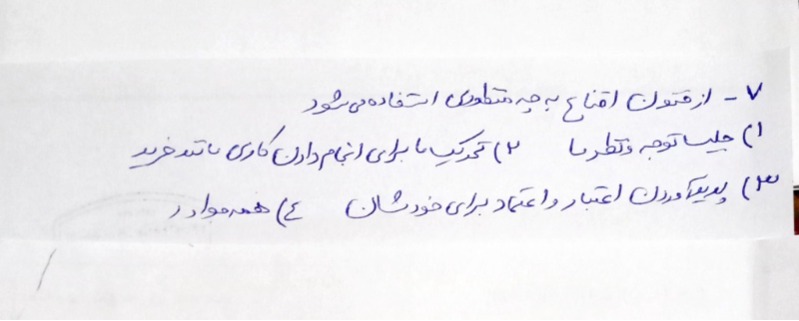 ۷ - از فنون اقناع به چه منظوری استفاده می شود
۱) جلب توجه و نظر ما ۲) تحریک ما برای انجام دادن کاری مانند خرید
۳) پدید آوردن اعتبار و اعتماد برای خودشان ٤) همه موارد